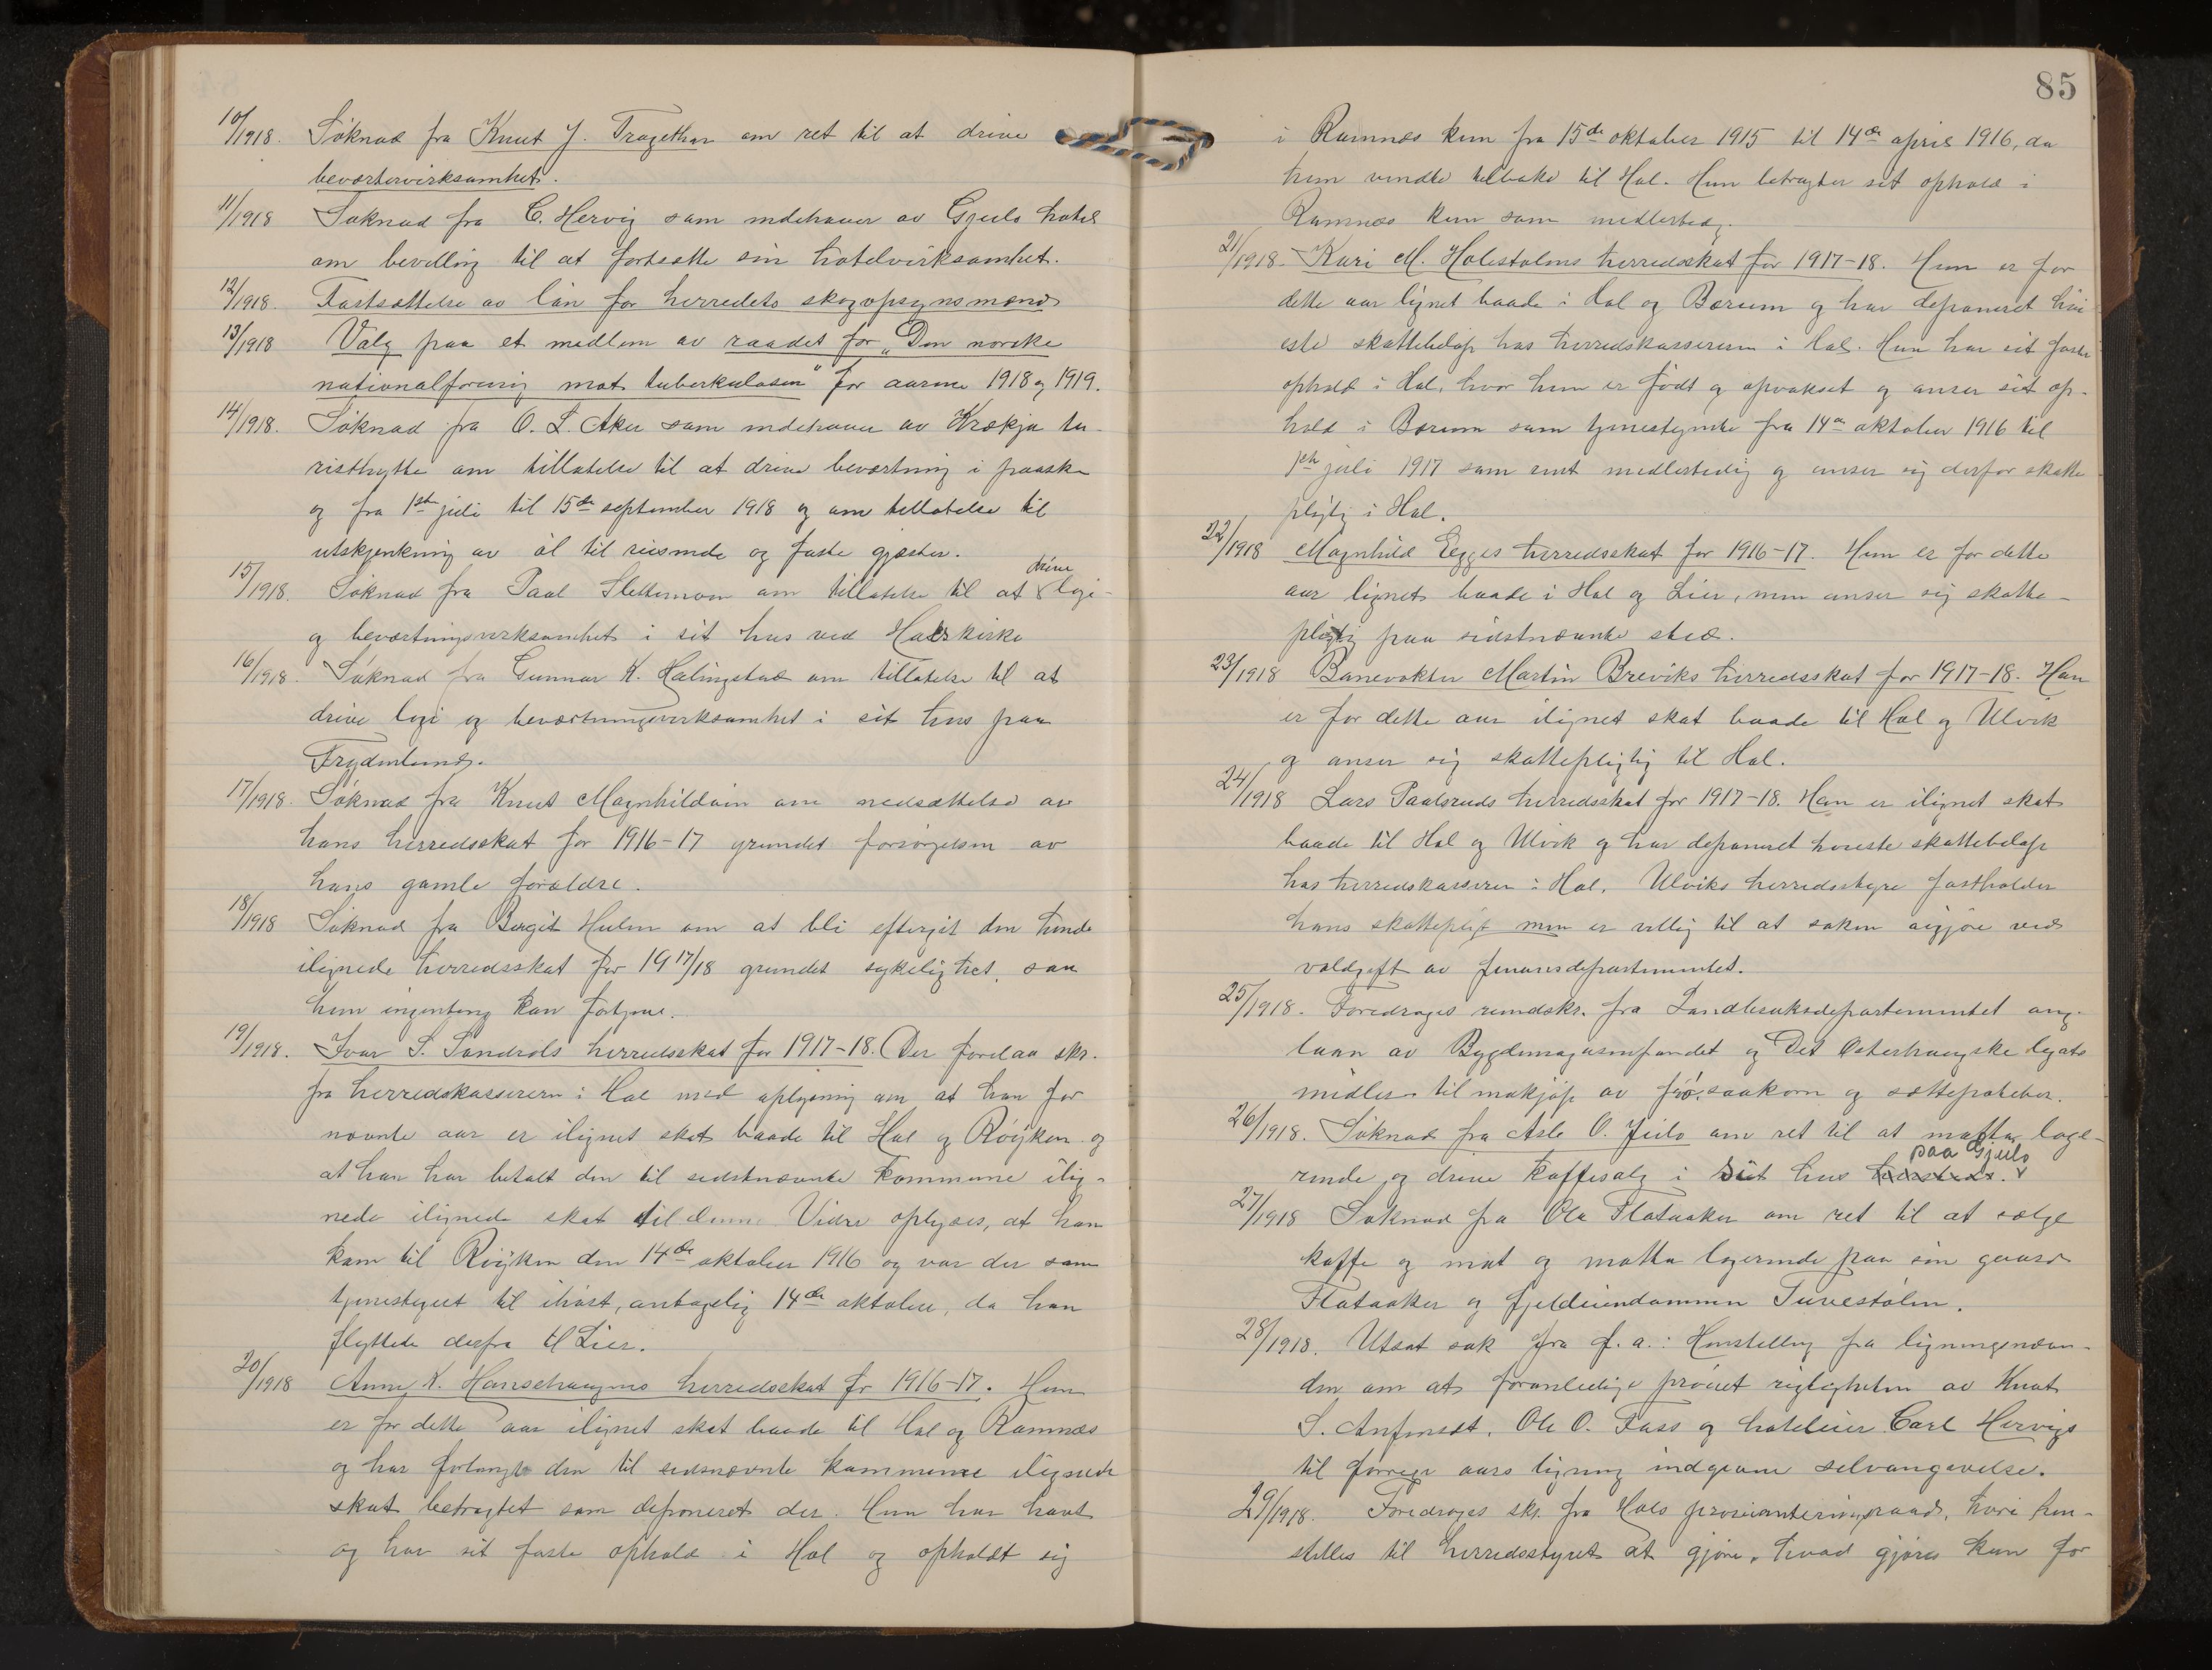 10/1918. Søknad fra Knut J. Tragethon om ret til at drive
beværtervirksomhet.
11/1918 Søknad fra C. Hervig som indehaver av Gjeilo hotel
om bevilling til at fortsætte sin hotelvirksomhet.
12/1918. Fastsættelse av løn for herredets skogopsynsmænd
13/1918 Valg paa et medlem av raadet for „Den norske
nationalforening mot tuberkulosen" for aarene 1918 og 1919.
14/1918. Søknad fra O. L. Aker som indehaver av Krækja tu-
risthytte om tillatelse til at drive beværtning i paaske
og fra 1ste juli til 15de september 1918 og om tillatelse til
utskjenkning av øl til reisende og faste gjæster.
15/1918. Søknad fra Paal Slettemoen om tillatelse til at drive logi-
og beværtningsvirksomhet i sit hus ved Hols kirke
16/1918. Søknad fra Gunnar K. Halingstad om tillatelse til at
drive logi og beværtningsvirksomhet i sit hus paa
Frydenlund.
17/1918. Søknad fra Knut Magnhildøin om nedsættelse av
hans herredsskat for 1916-17 grundet forsørgelsen av
hans gamle forældre.
18/1918 Søknad fra Birgit Hulen om at bli eftergit den hende
ilignede herredsskat for 1917/18 grundet sykelighet, saa
hun ingenting kan fortjene.
19/1918. Ivar S. Sandrols herredsskat for 1917-18. Der forelaa skr.
fra herredskassereren i Hol med oplysning om at han for
nævnte aar er ilignet skat baade til Hol og Røyken og
at han har betalt den til sidstnævnte kommune ilig-
nede ilignede skat til denne. Videre oplyses, at han
kom til Røyken den 14de oktober 1916 og var der som
tjenestegut til ihøst, antagelig 14de oktober, da han
flyttede derfra til Lier.
20/1918 Anne K. Hansehaugens herredsskat for 1916-17. Hun
er for dette aar ilignet skat baade til Hol og Ramnes
og har forlangt den til sidsnævnte kommune ilignede
skat betragtet som deponeret der. Hun har havt
og har sit faste ophold i Hol og opholdt sig
85
i Ramnes kun fra 15de oktober 1915 til 14de april 1916, da
hun vendte tilbake til Hol. Hun betragter sit ophold i
Ramnes kun som midlertidig.
21/1918. Kari M. Holestølens herredsskat for 1917-18. Hun er for
dette aar lignet baade i Hol og Bærum og har deponeret høi
este skattebeløp hos herredskassereren i Hol. Hun har sit faste
ophold i Hol, hvor hun er født og opvokset og anser sit op-
hold i Bærum som tjenestejente fra 14de oktober 1916 til
1ste juli 1917 som rent midlertidig og anser sig derfor skatte
pligtig i Hol.
22/1918 Magnhild Egges herredsskat for 1916-17. Hun er for dette
aar lignet baade i Hol og Lier, men anser sig skatte-
pligtig paa sidstnævnte sted.
23/1918 Banevokter Martin Breviks herredsskat for 1917-18. Han
er for dette aar ilignet skat baade til Hol og Ulvik
og anser sig skattepligtig til Hol.
24/1918 Lars Paalsruds herredsskat for 1917-18. Han er ilignet skat
baade til Hol og Ulvik og har deponeret høieste skattebeløp
hos herredskasserer i Hol. Ulviks herredsstyre fastholder
hans skattepligt men er villig til at saken avgjøres ved
voldgift av finansdepartementet.
25/1918. Foredroges rundskr. fra Landbruksdepartementet ang.
laan av Bygdemagasinfondet og Det Osterhaugske legats
midler til indkjøp av frø, saakorn og sættepoteter.
26/1918. Søknad fra Asle O. Jeilo om ret til at motta loge-
rende og drive kaffesalg i sit hus paa Gjeilo.
27/1918 Søknad fra Ole Flataaker om ret til at sælge
kaffe og mat og motta logerende paa sin gaard
Flataaker og fjeldeiendommen Turestølen.
28/1918. Utsat sak fra f. a.: Henstilling fra ligningsnævn-
den om at foranledige prøvet rigtigheten av Knut
S. Anfinset, Ole O. Foss og hoteleier Carl Hervigs
til forrige aars ligning indgivne selvangivelse.
29/1918. Foredroges skr. fra Hols provianteringsraad, hvori hen-
stilles til herredsstyret at gjøre, hvad gjøres kan for